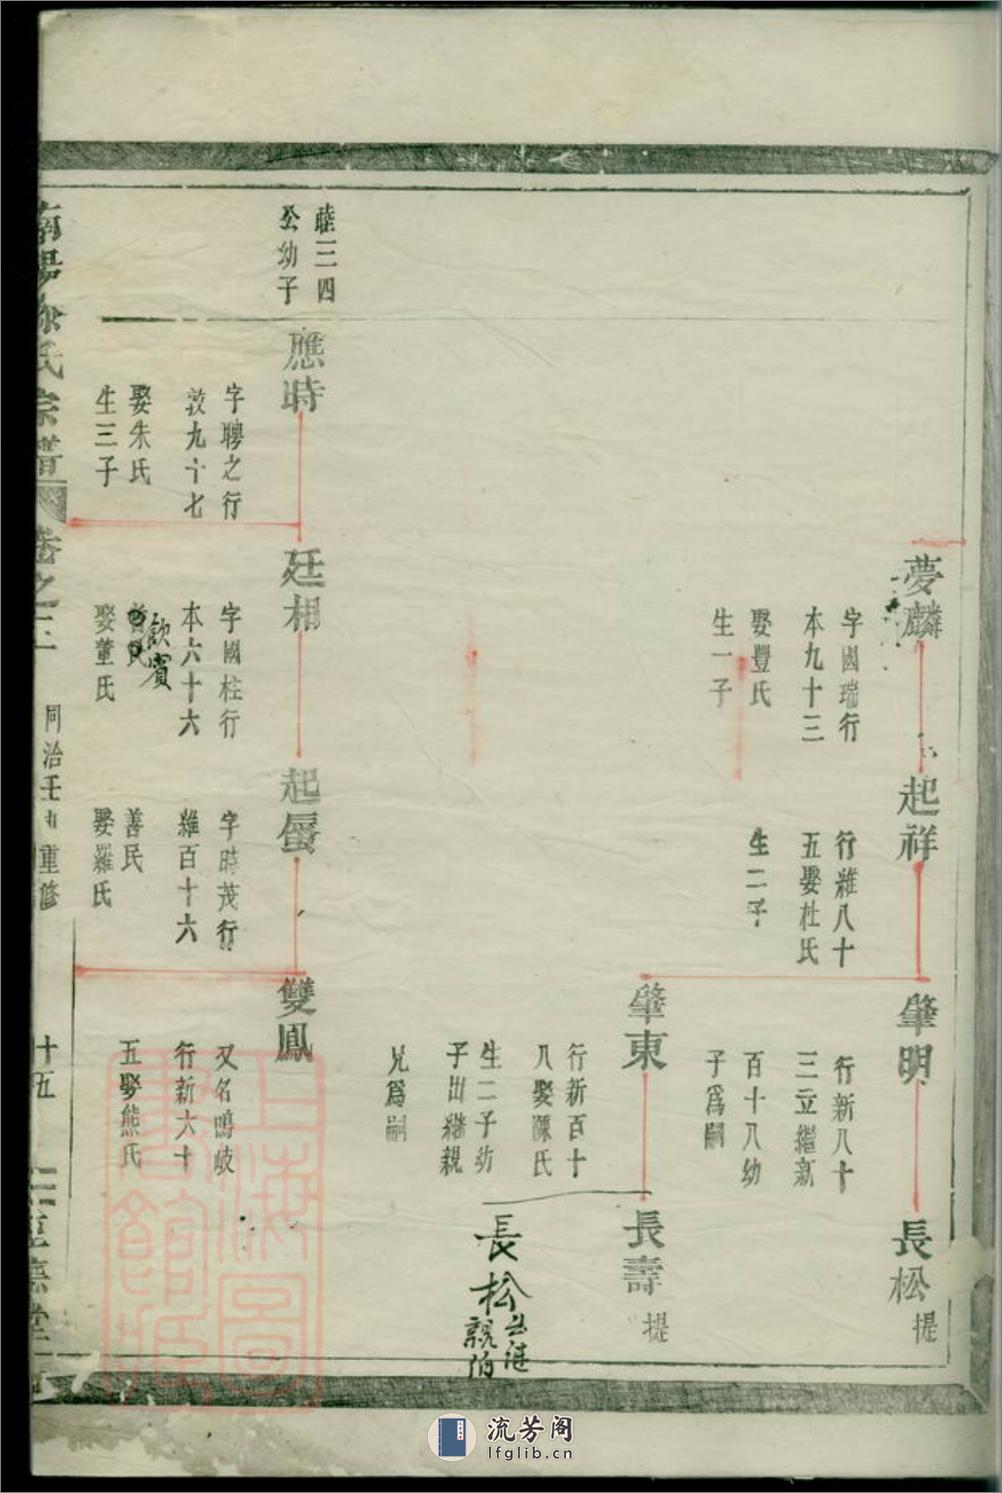 夢麟
字國瑞行
本九十三
娶豐氏
生一子
起祥
行雜八十
五娶杜氏
生二子
肇明
行新八十
三立繼新
百十八幼
子爲嗣
長松
提
肇東
行新百十
八娶陳氏
生二子幼
子出繼親
兄爲嗣
長壽
提
長松
出繼
親兄
睦三四
公幼子
應時
字聘之行
敦九十七
娶朱氏
生三子
廷相
字國柱行
本六十六
飲賓
娶董氏
起蜃
字時茂行
雜百十六
善民
娶羅氏
雙鳳
又名鳴岐
行新六十
五娶熊氏
南陽徐氏宗譜
卷之二
同治壬
重修
十五
上海圖書館藏
流芳阁
lfglib.cn